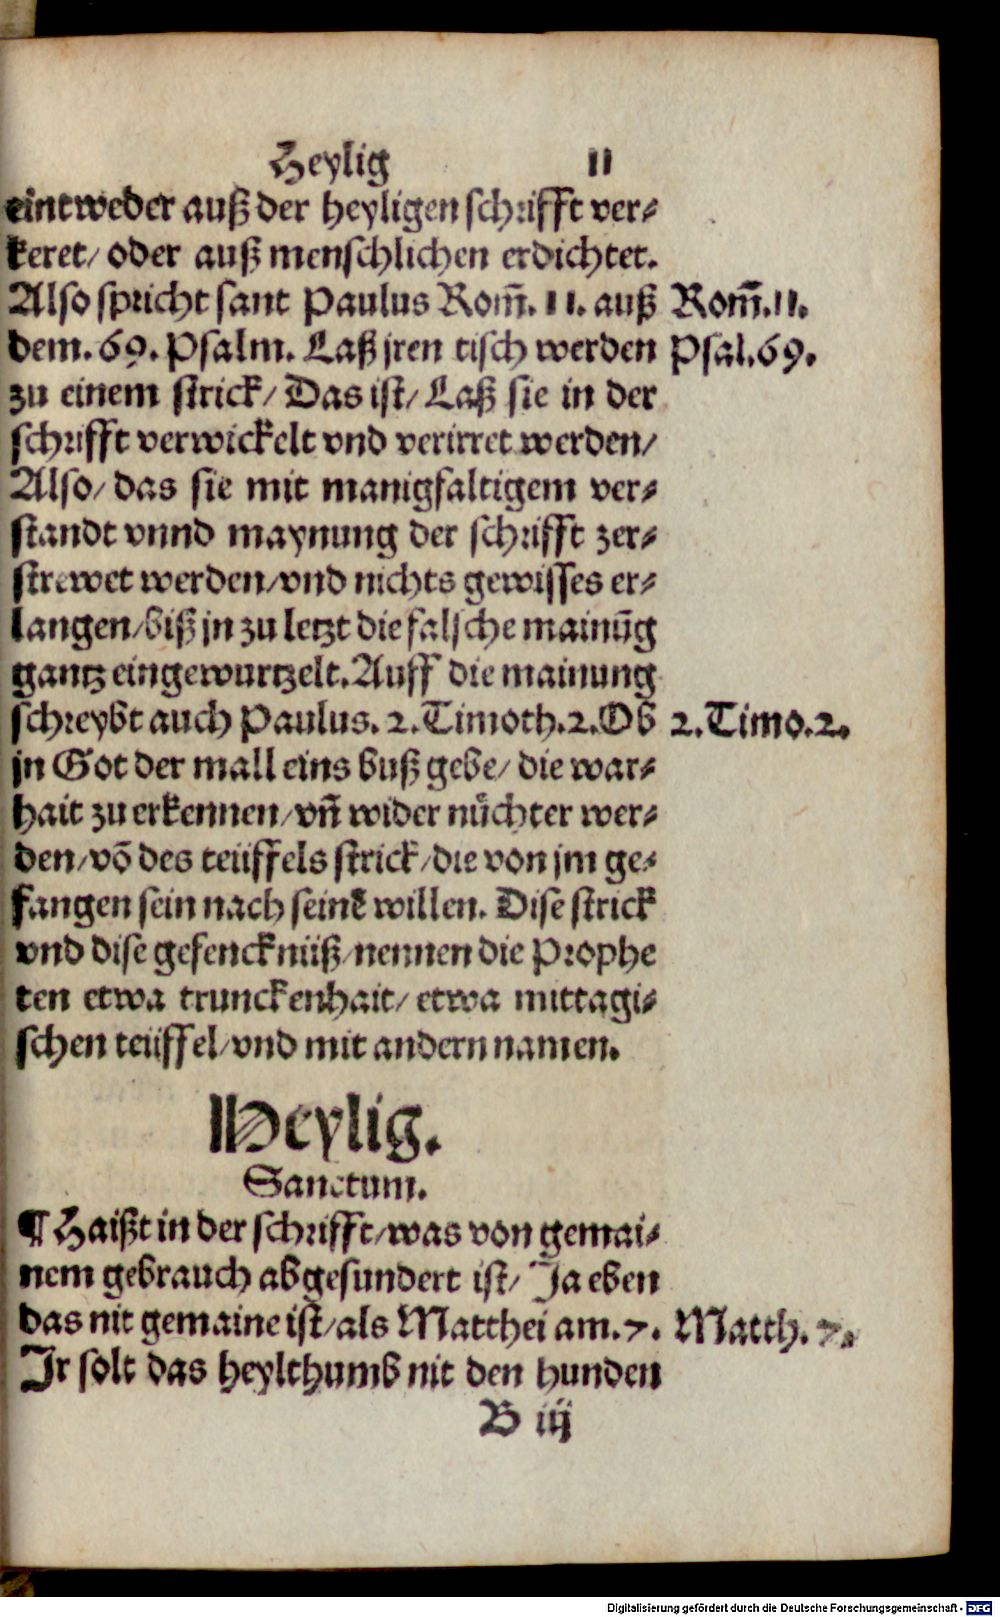 Heylig 11
eintweder auß der heyligen schrifft ver⸗
keret/ oder auß menschlichen erdichtet.
Also spricht sant Paulus Rom̃. 11. auß Rom̃.11.
dem. 69. Psalm. Laß jren tisch werden Psal.69.
zu einem strick/ Das ist/ Laß sie in der
schrifft verwickelt vnd verirret werden/
Also/ das sie mit manigfaltigem ver⸗
standt vnnd maynung der schrifft zer⸗
strewet werden/vnd nichts gewisses er⸗
langen/biß jn zu letzt die falsche mainūg
gantz eingewurtzelt. Auff die mainung
schreybt auch Paulus. 2. Timoth.2. Ob 2. Timo.2.
jn Got der mall eins buß gebe/ die war⸗
hait zu erkennen/vñ wider nüchter wer⸗
den/võ des teüffels strick/die von jm ge⸗
fangen sein nach seinē willen. Dise strick
vnd dise gefencknüß/nennen die Prophe
ten etwa trunckenhait/ etwa mittagi⸗
schen teüffel/vnd mit andern namen.
Heylig.
Sanctum.
¶ Haißt in der schrifft/was von gemai⸗
nem gebrauch abgesundert ist/ Ja eben
das nit gemaine ist/als Matthei am.7. Matth. 7.
Jr solt das heylthumb nit den hunden
B iij
Digitalisierung gefördert durch die Deutsche Forschungsgemeinschaft - DFG